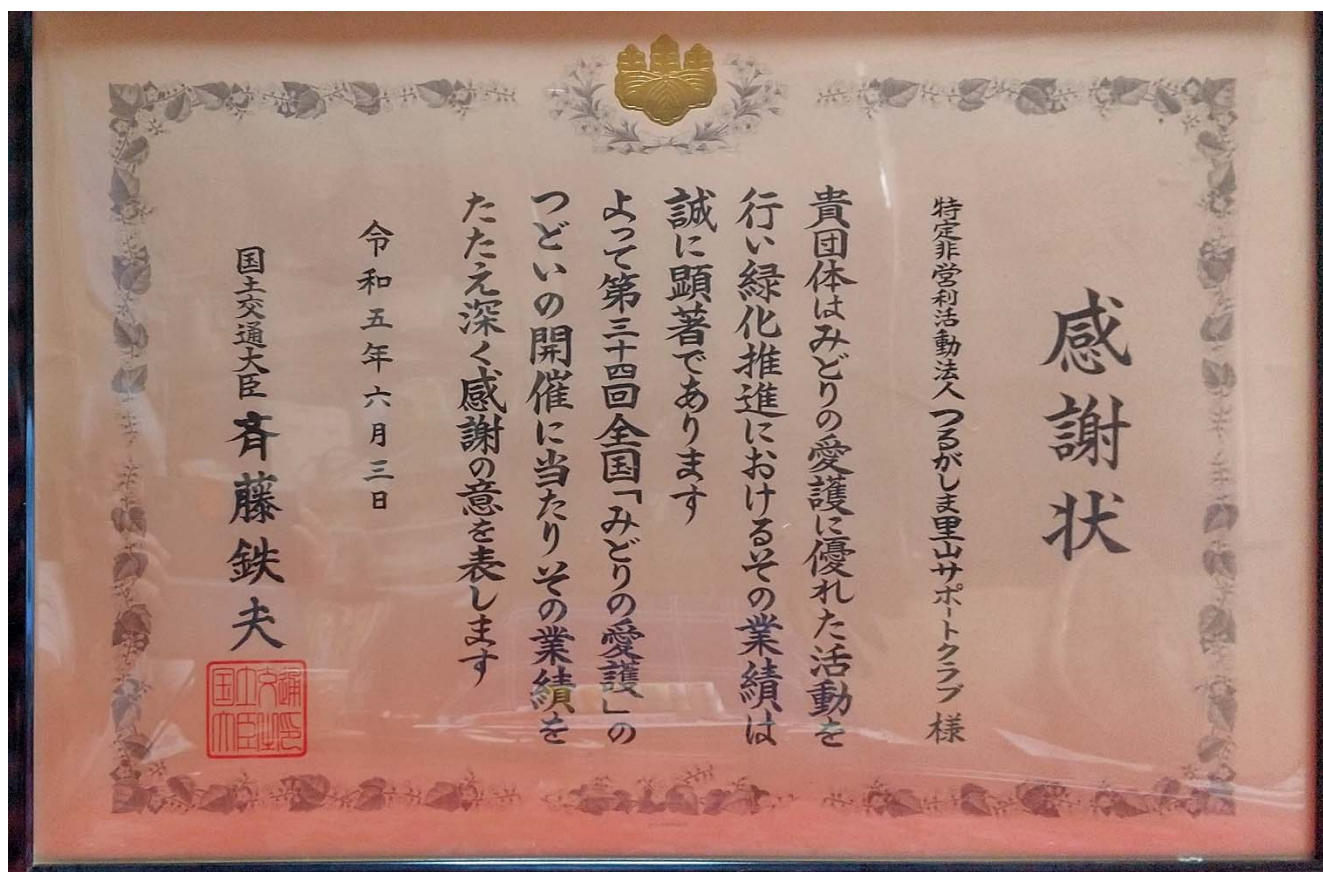 感謝状
特定非営利活動法人 つるがしま里山サポートクラブ 様
貴団体はみどりの愛護に優れた活動を
行い緑化推進におけるその業績は
誠に顕著であります
よって第三十四回全国「みどりの愛護」の
つどいの開催に当たりその業績を
たたえ深く感謝の意を表します
令和五年六月三日
国土交通大臣 斉藤鉄夫